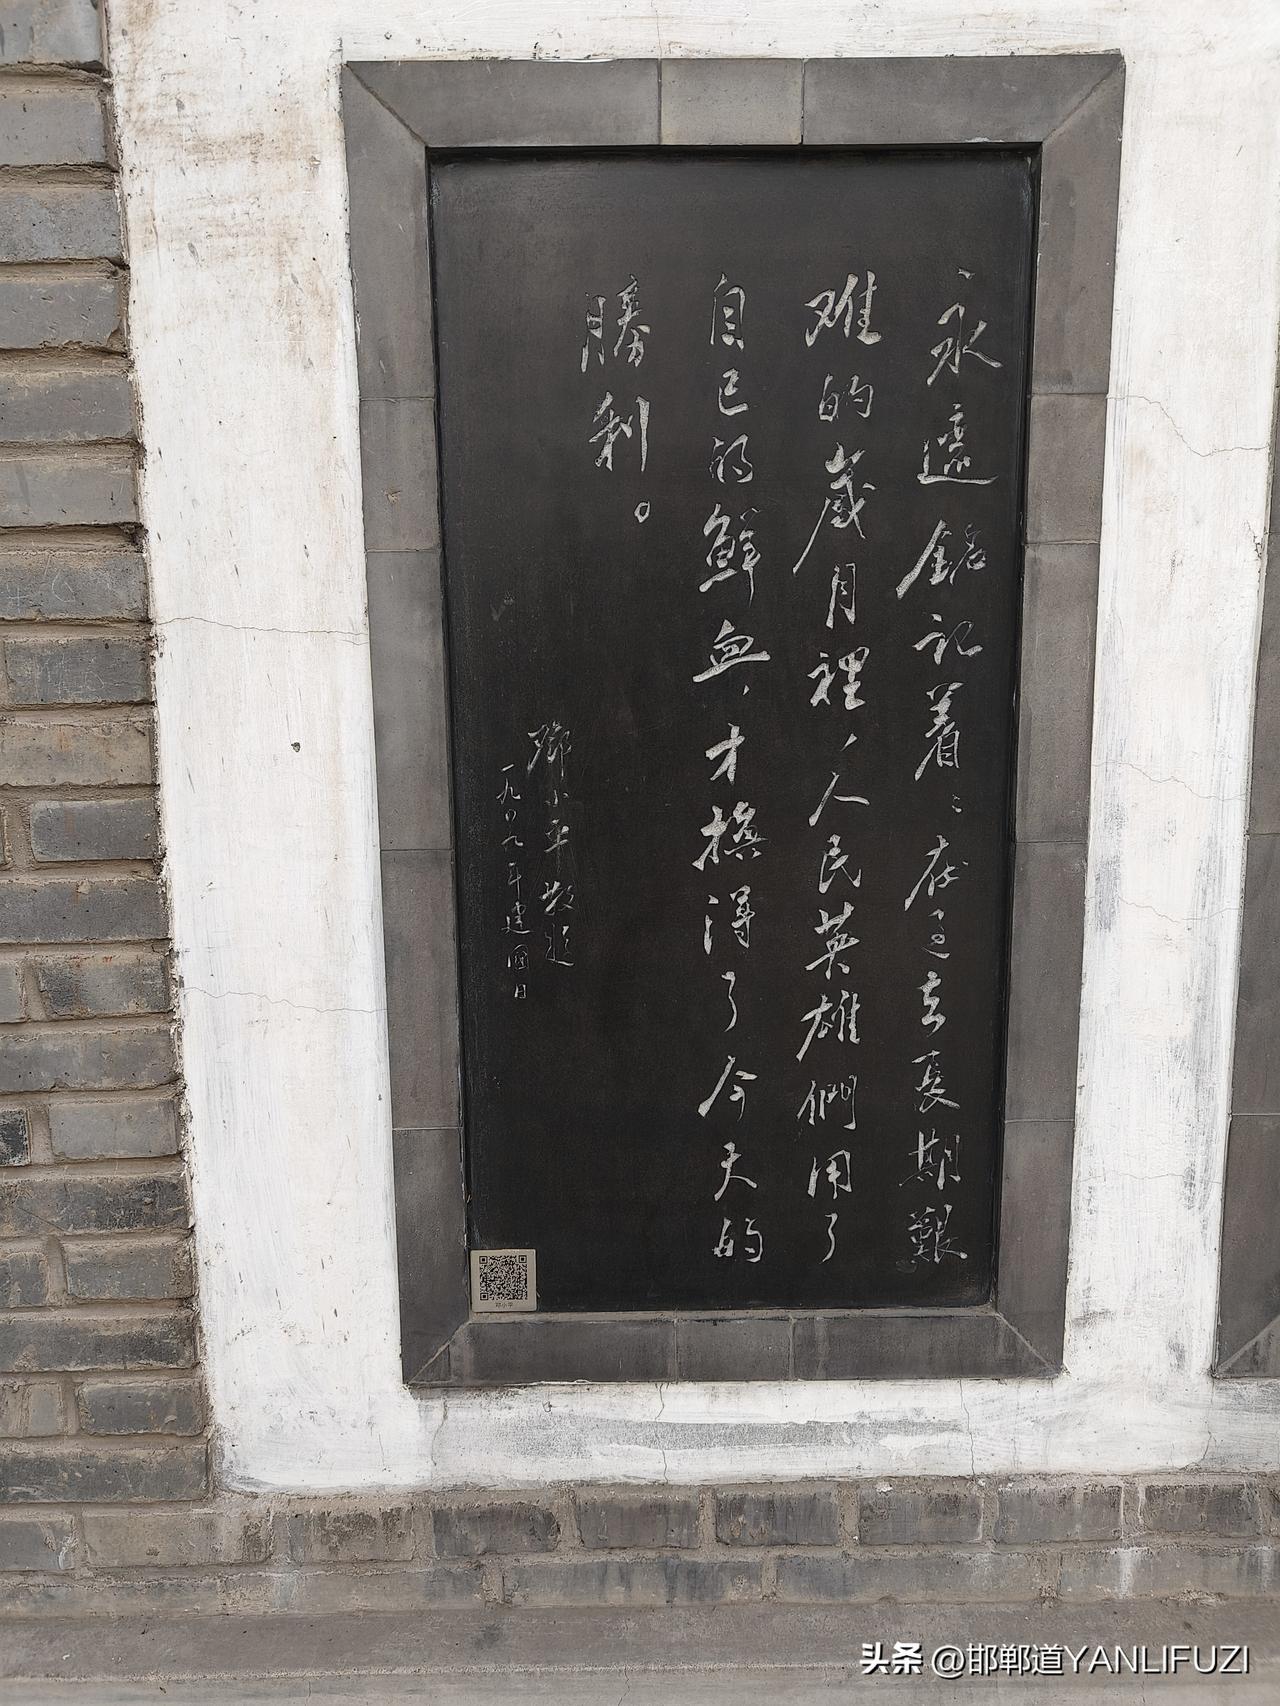 永遠銘記着：在过去長期艱
难的歲月裡，人民英雄們用了
自己的鮮血，才換得了今天的
勝利。
鄧小平敬題
一九四九年建國日
邓小平
头条 @邯郸道YANLIFUZI